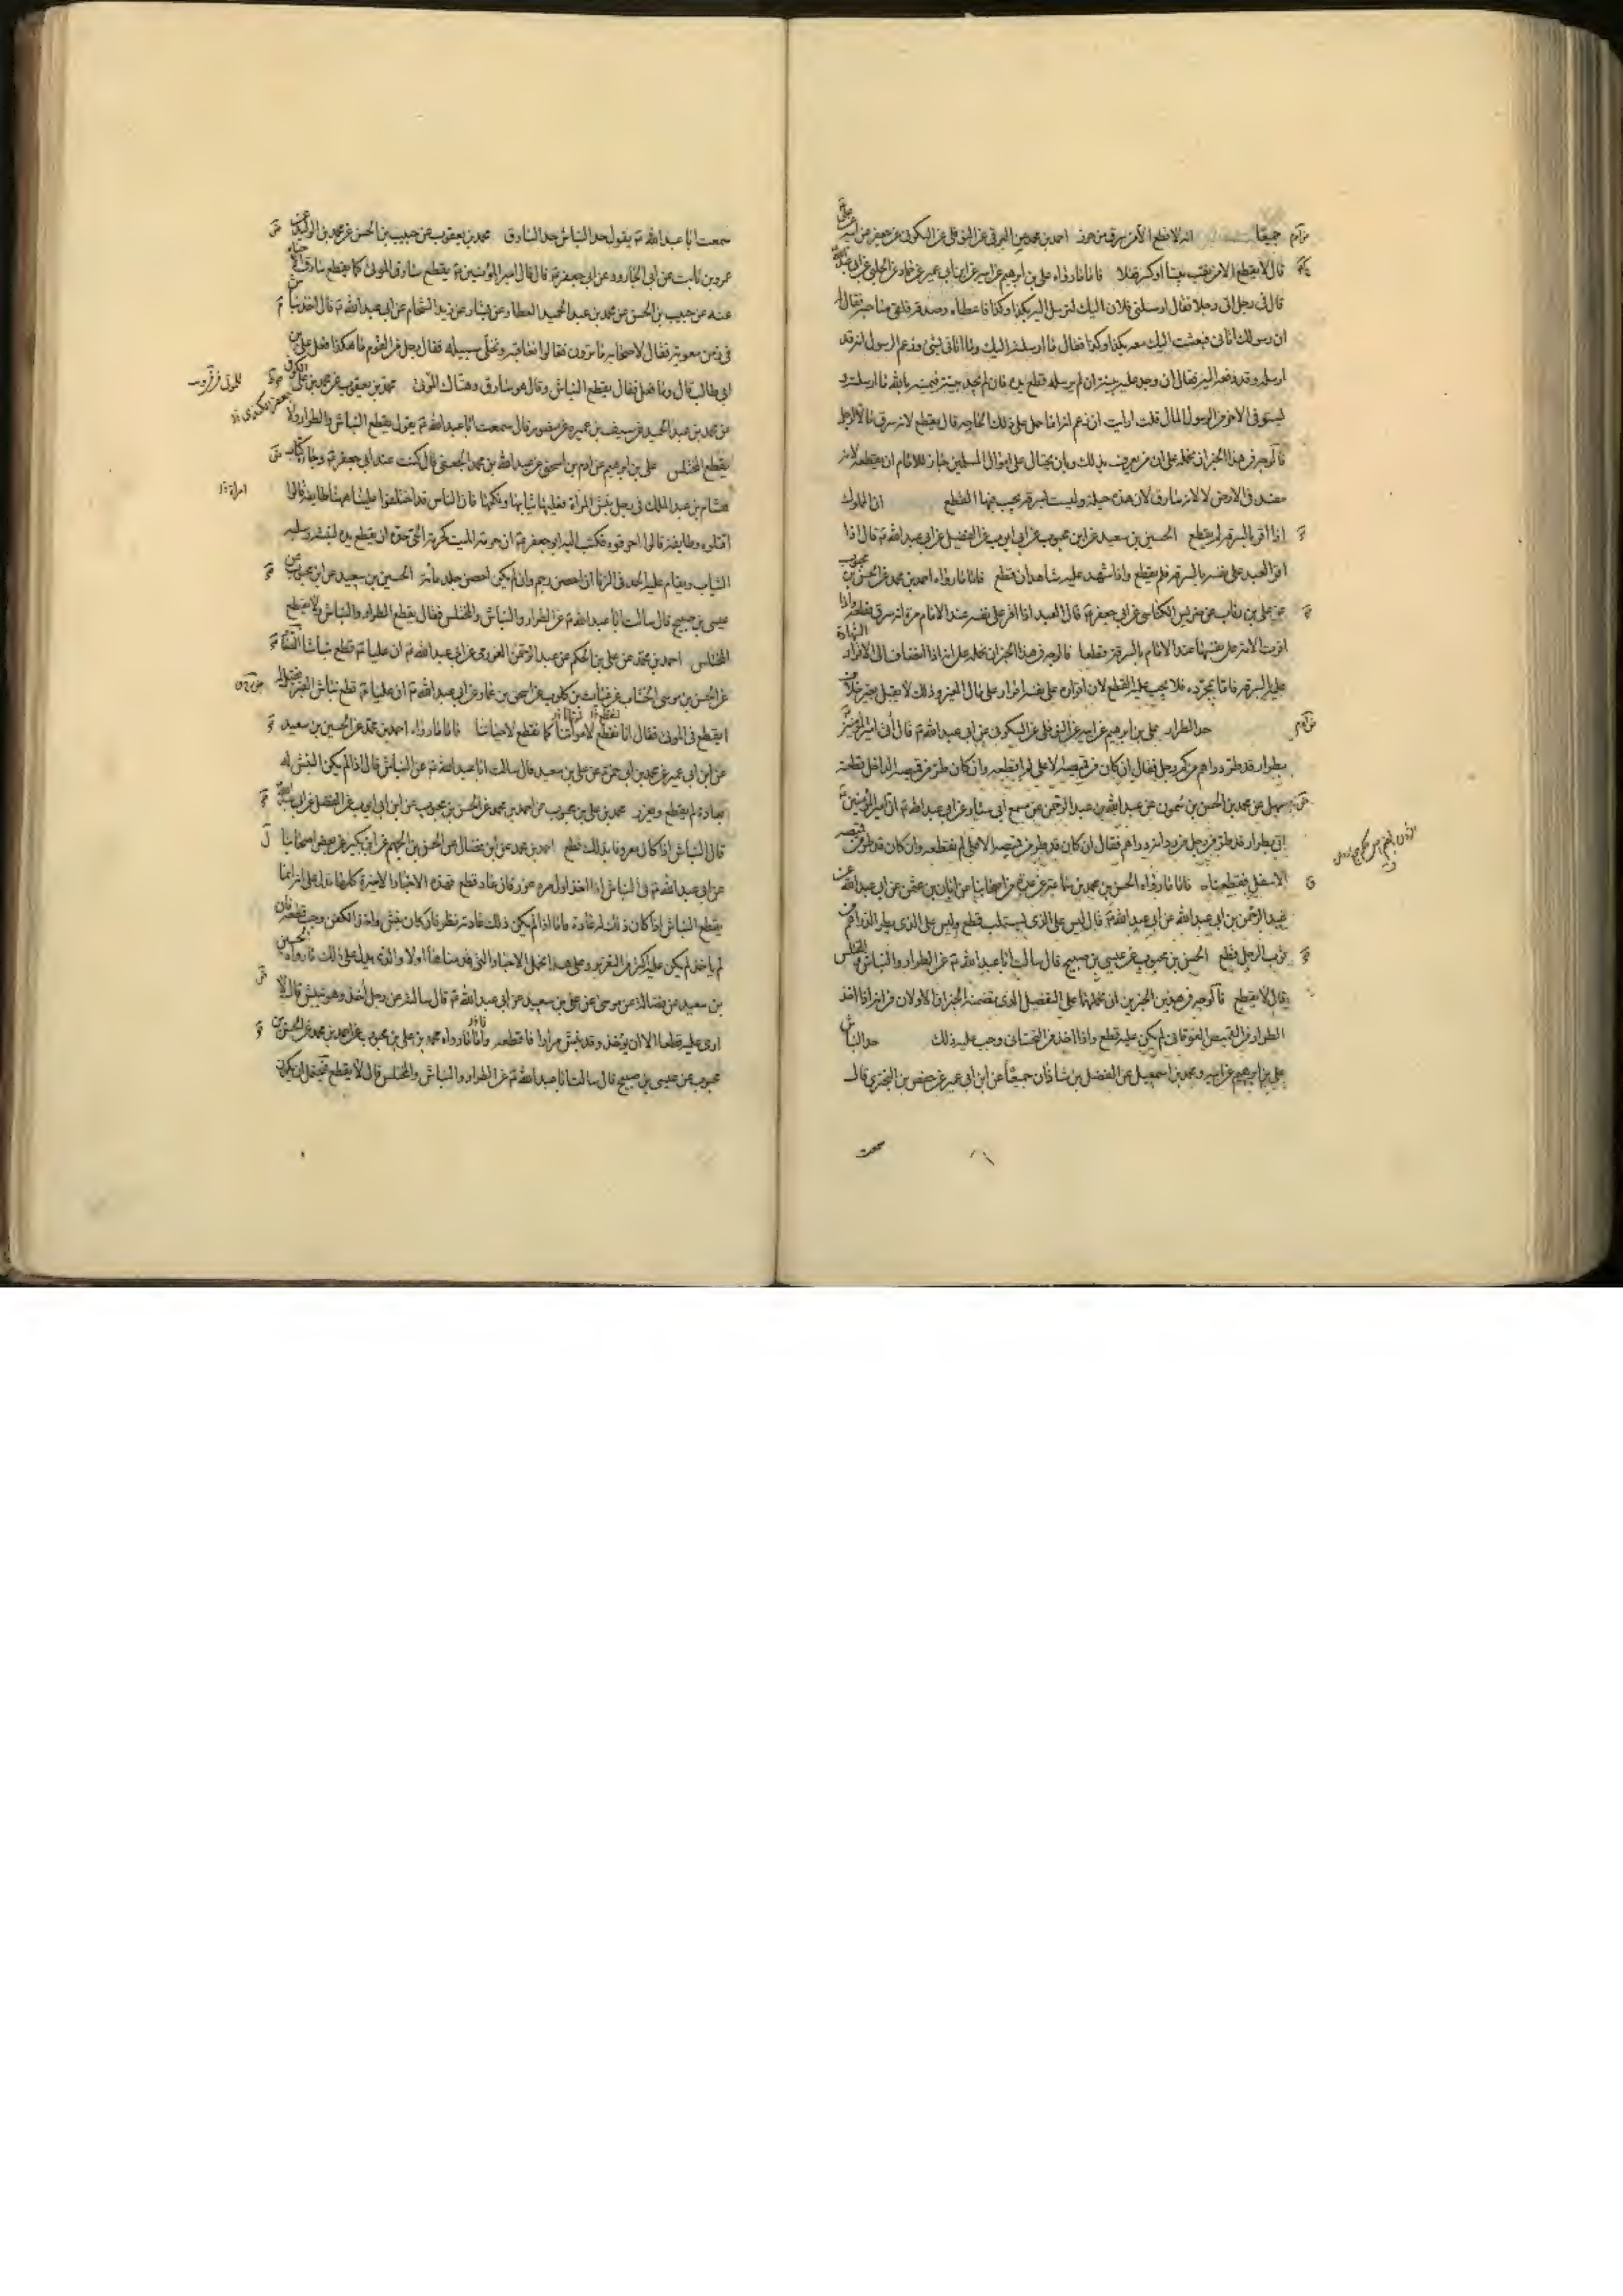 جميعا انه لا قطع الا من سرق من حرز احمد بن محمد عن البرقي عن النوفلي عن السكوني عن جعفر عن ابيه عن علي ع
قال لا يقطع الا من نقب بيتا او كسر قفلا فاما ما رواه علي بن ابرهيم عن ابيه عن ابن ابي عمير عن حماد عن الحلبي عن ابي عبدالله
قال في رجل اتى رجلا فقال ارسلني فلان اليك لترسل اليه بكذا وكذا فاعطاه وصدقه فلقي صاحبه فقال له
ان رسولك اتاني فبعثت اليك معه بكذا وكذا فقال ما ارسلته اليك وما اتاني بشئ وزعم الرسول انه قد
ارسله وقد دفعه اليه فقال ان وجد عليه بينة ان لم يرسله قطع يده فان لم يجد بينة فيمينه بالله ما ارسلته و
ليستوفي الاخر من الرسول المال قلت ارايت ان زعم انه انما حمله على ذلك الحاجة قال يقطع لانه سرق مال الرجل
فالوجه في هذا الخبر ان نحمله على ان من يعرف بذلك وبان يحتال على اموال المسلمين جاز للامام ان يقطعه لانه
مفسد في الارض لا لانه سارق لان هذه حيلة وليست بسرقة يجب فيها القطع ان المملوك
اذا اقر بالسرقة لم يقطع الحسين بن سعيد عن ابن محبوب عن ابي ايوب عن الفضيل عن ابي عبد الله ع قال اذا
اقر العبد على نفسه بالسرقة لم يقطع واذا شهد عليه شاهدان قطع فاما ما رواه احمد بن محمد عن الحسن بن محبوب
عن علي بن رئاب عن ضريس الكناسي عن ابي جعفر ع قال العبد اذا اقر على نفسه عند الامام مرة انه سرق قطعه واذا
اقرت الامة على نفسها عند الامام بالسرقة قطعها فالوجه في هذا الخبر ان نحمله على انه اذا انضاف الى الاقرار الشهادة
عليه بالسرقة فاما بمجرده فلا يجب عليه القطع لان اقراره على نفسه اقرار على مال الغير وذلك لا يقبل
حد الطرار علي بن ابرهيم عن ابيه عن النوفلي عن السكوني عن ابي عبد الله ع قال اتى امير المؤمنين
بطرار قد طر دراهم من كم رجل فقال ان كان من قميصه الاعلى لم اقطعه وان كان طر من قميصه الداخل قطعته
سهل عن محمد بن الحسن بن شمون عن عبد الله بن عبد الرحمن عن مسمع ابي سيار عن ابي عبد الله ع ان امير المؤمنين
اتى بطرار قد طر من رجل من ردائه دراهم فقال ان كان قد طر من قميصه الاعلى لم نقطعه وان كان قد طر من قميصه
الاسفل قطعناه فاما ما رواه الحسن بن محمد بن سماعة عن عدة من اصحابنا عن ابان بن عثمن عن ابي عبد الله عن
عبد الرحمن بن ابي عبد الله عن ابي عبد الله ع قال ليس على الذي يستلب قطع وليس على الذي يطر الدراهم من
ثوب الرجل قطع الحسن بن محبوب عن عيسى بن صبيح قال سالت ابا عبد الله ع عن الطرار والنباش والمختلس
قال لا يقطع فالوجه في هذين الخبرين ان نحملهما على التفصيل الذي تضمنه الخبران الاولان من انه اذا اخذ
الطرار من القميص الفوقاني لم يكن عليه قطع واذا اخذ من التحتاني وجب عليه ذلك حد النباش
علي بن ابرهيم عن ابيه ومحمد بن اسمعيل عن الفضل بن شاذان جميعا عن ابن ابي عمير عن حفص بن البختري قال
سمعت
سمعت ابا عبد الله ع يقول حد النباش حد السارق محمد بن يعقوب عن حبيب بن الحسن عن محمد بن الوليد عن
عمرو بن ثابت عن ابي الجارود عن ابي جعفر ع قال قال امير المؤمنين ع يقطع سارق الموتى كما يقطع سارق الاحياء
عنه عن حبيب بن الحسن عن محمد بن عبد الحميد العطار عن بشار عن زيد الشحام عن ابي عبد الله ع قال اخذ نباش
في زمن معوية فقال لاصحابه ما ترون فقالوا نعاقبه ونخلي سبيله فقال رجل من القوم ما هكذا فعل علي بن
ابي طالب قال وما فعل فقال يقطع النباش وقال هو سارق وهتاك الموتى محمد بن يعقوب عن محمد بن جعفر الكوفي
عن محمد بن عبد الحميد عن سيف بن عميرة عن منصور قال سمعت ابا عبد الله ع يقول يقطع النباش والطرار ولا
يقطع المختلس علي بن ابرهيم عن ادم بن اسحق عن عبد الله بن محمد الجعفي قال كنت عند ابي جعفر ع وجاءه كتاب
هشام بن عبد الملك في رجل نبش امراة فسلبها ثيابها ونكحها فان الناس قد اختلفوا علينا هيهنا طايفة قالوا
اقتلوه وطايفة قالوا احرقوه فكتب اليه ابو جعفر ع ان حرمة الميت كحرمة الحي حده ان يقطع يده لنبشه وسلبه
الثياب ويقام عليه الحد في الزنا ان احصن رجم وان لم يكن احصن جلد مائة الحسين بن سعيد عن ابن محبوب عن
عيسى بن صبيح قال سالت ابا عبد الله ع عن الطرار والنباش والمختلس فقال يقطع الطرار والنباش ولا يقطع
المختلس احمد بن محمد عن علي بن الحكم عن عبد الرحمن العزرمي عن ابي عبد الله ع ان عليا ع قطع نباشا
عن الحسن بن موسى الخشاب عن غياث بن كلوب عن اسحق بن عمار عن ابي عبد الله ع ان عليا ع قطع نباش القبر فقيل له
ايقطع في الموتى فقال انا نقطع لامواتنا كما نقطع لاحيائنا فاما ما رواه احمد بن محمد عن الحسين بن سعيد
عن ابن ابي عمير عن محمد بن ابي حمزة عن علي بن سعيد قال سالت ابا عبد الله ع عن النباش قال اذا لم يكن النبش له
بعادة لم يقطع ويعزر محمد بن علي بن محبوب عن احمد بن محمد عن الحسن بن محبوب عن ابن ابي ايوب عن الفضل عن ابي عبدالله
قال النباش اذا كان معروفا بذلك قطع احمد بن محمد عن ابن فضال عن الحسن بن الجهم عن ابن بكير عن بعض اصحابنا
عن ابي عبد الله ع في النباش اذا اخذ اول مرة عزر فان عاد قطع فهذه الاخبار الاخيرة كلها تدل على انه انما
يقطع النباش اذا كان ذلك له عادة فاما اذا لم يكن ذلك عادته نظر فان كان نبش واخذ الكفن وجب قطعه فان
لم ياخذ لم يكن عليه اكثر من التعزير وعلى هذا نحمل الاخبار التي قدمناها اولا والذي يدل على ذلك ما رواه الحسين
بن سعيد عن فضالة عن موسى عن علي بن سعيد عن ابي عبد الله ع قال سالته عن رجل اخذ وهو ينبش قال لا
ارى عليه قطعا الا ان يؤخذ وقد نبش مرارا فاقطعه واما ما رواه محمد بن علي بن محبوب عن احمد بن محمد عن الحسن بن
محبوب عن عيسى بن صبيح قال سالت ابا عبد الله ع عن الطرار والنباش والمختلس قال لا يقطع فيحتمل ان يكون